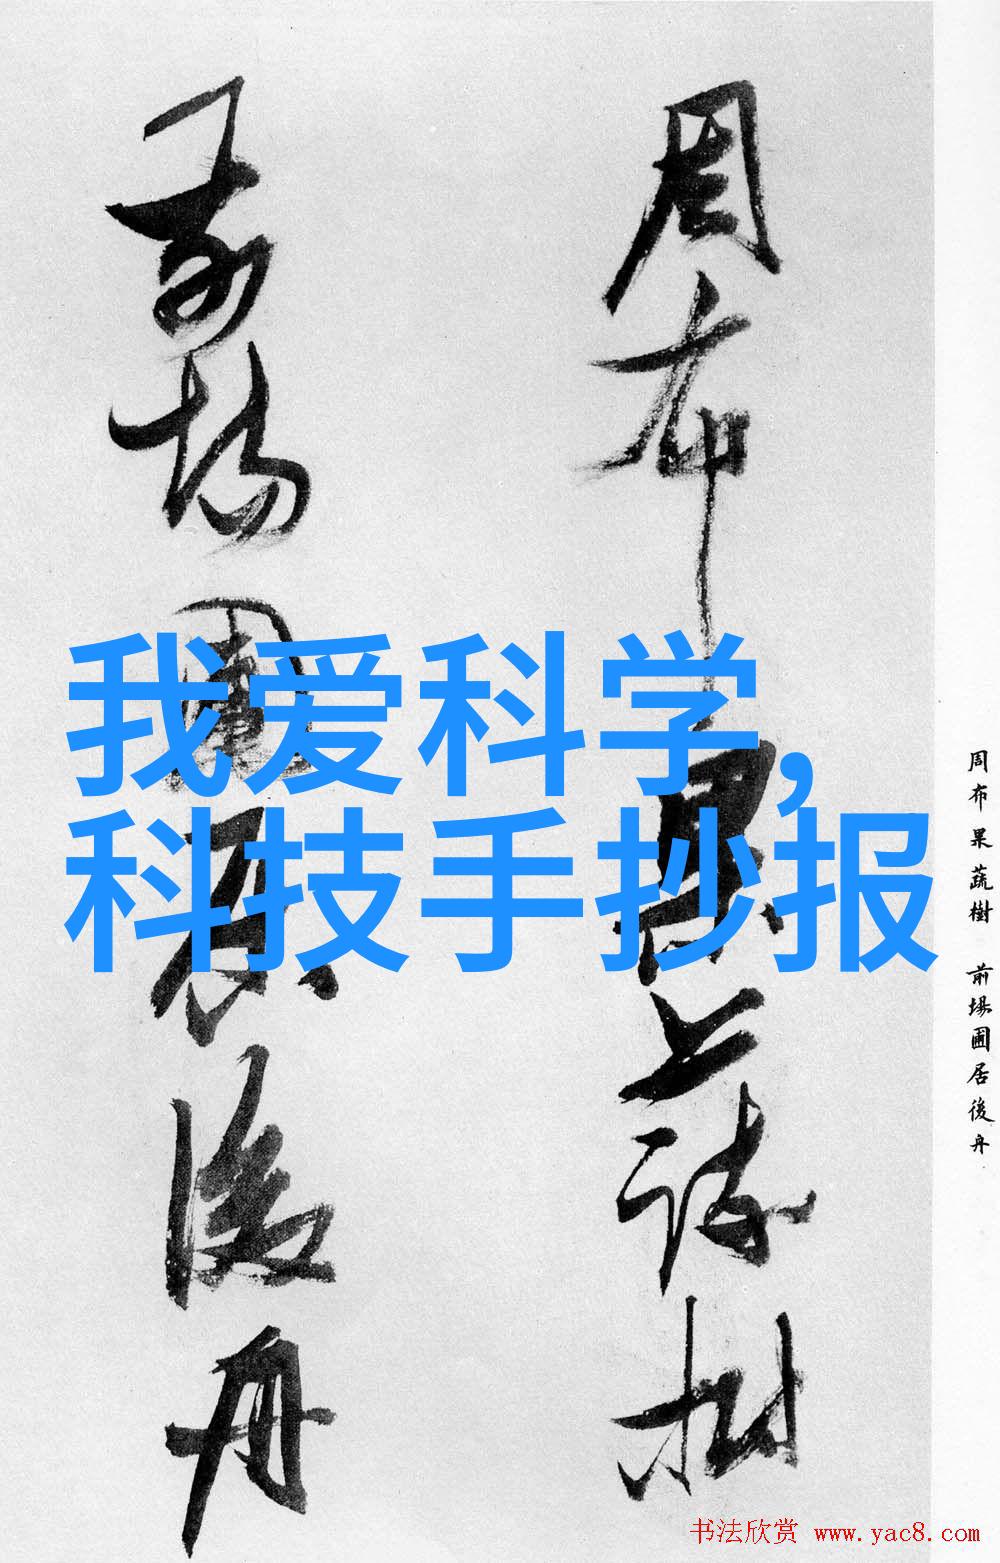 周布果蔬樹
前場圃居後舟
我爱科学,
科技手抄报
周布果蔬樹 前場圃居後舟
书法欣赏 www.yac8.com